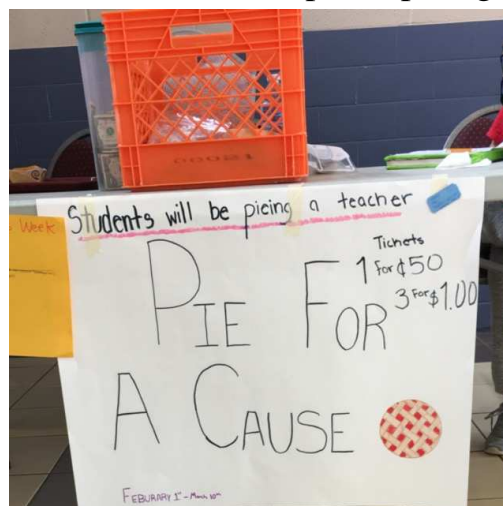 Week
Students will be pieing a teacher
Tickets
1 for ¢50
3 for $1.00
PIE FOR
A CAUSE
FEBURARY 1st - March 10th